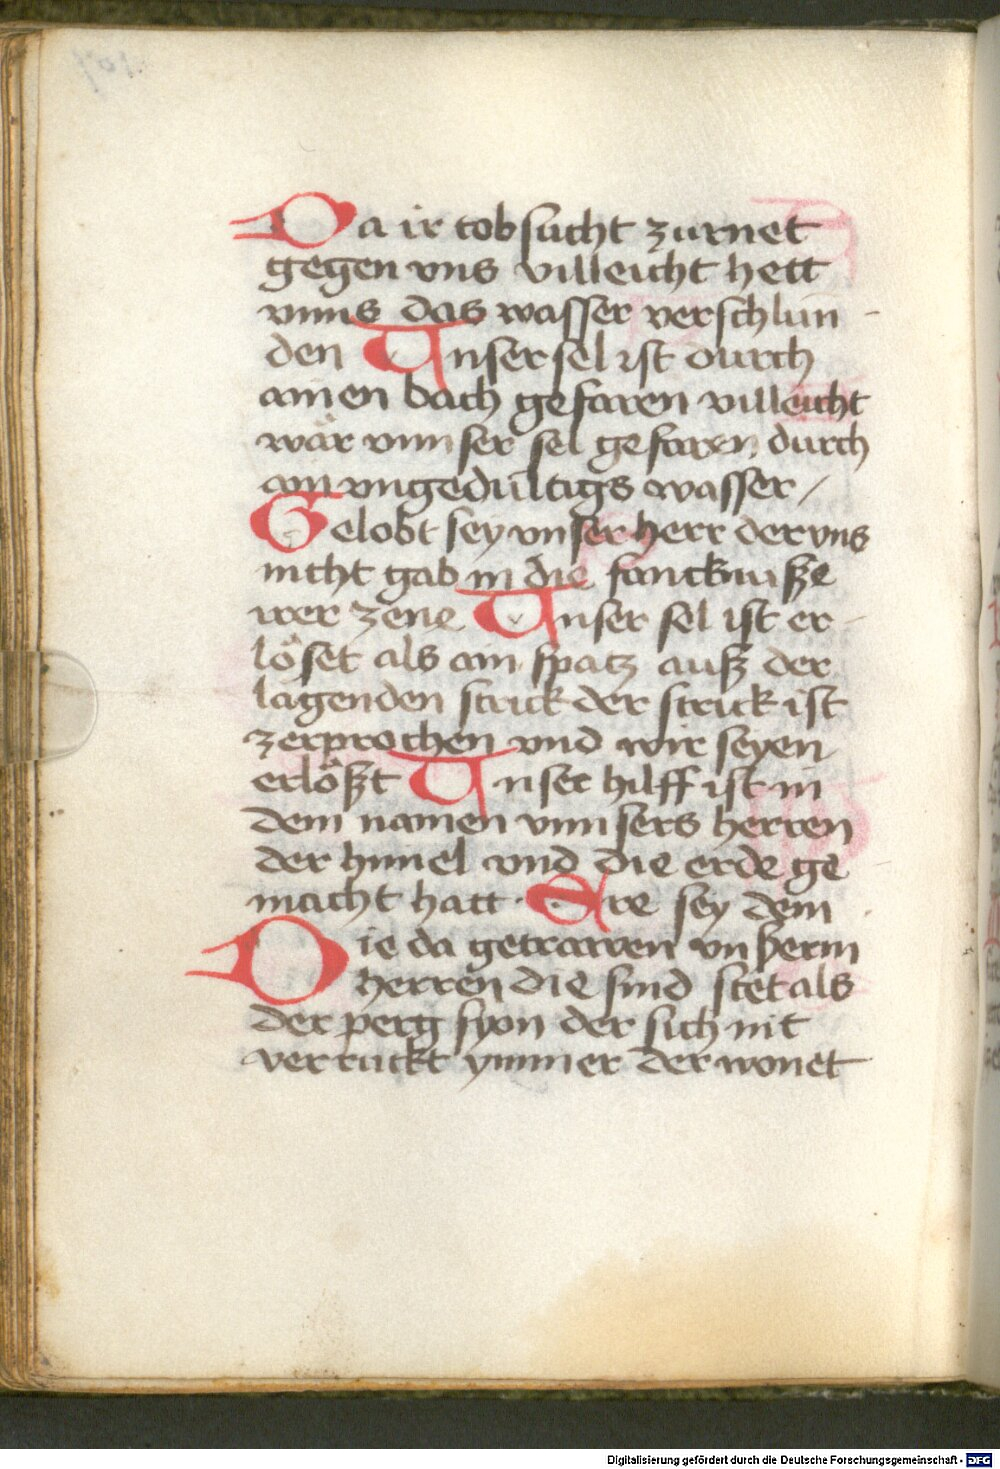 Da ir tobsucht zurnet
gegen vns villeicht hett
vnns das wasser verschlun
den Unser sel ist durch
ainen bach gefaren villeicht
wär vnnser sel gefaren durch
ain vngedultigs wasser /
Gelobt sey vnser herr der vns
nicht gab in die fancknusze
wer zene Unser sel ist er
löset als ain spatz ausz der
lagenden strick der strick ist
zerprochen vnd wir seyen
erlöszt Unser hilff ist in
dem namen vnnsers herren
der himel vnd die erde ge
macht hatt · Ere sey dem
Die da getrawen vnszerm
herren die sind stet als
der perg syon der sich nit
verruckt ymmer der wonet
Digitalisierung gefördert durch die Deutsche Forschungsgemeinschaft - DFG